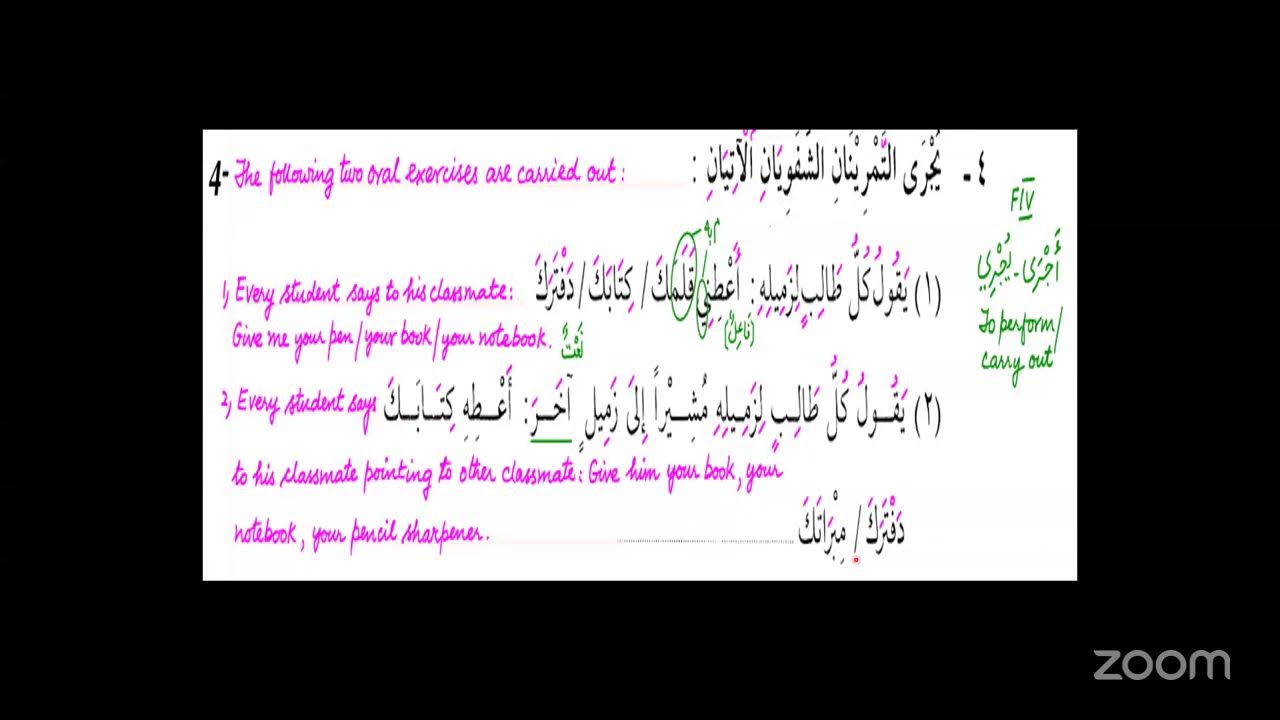 4- The following two oral exercises are carried out : ٤ - يُجْرَى التَّمْرِيْنَانِ الشَّفَوِيَانِ الْآتِيَانِ :
FIV
أَجْرَى - يُجْرِي
To perform/
carry out
1, Every student says to his classmate: (١) يَقُولُ كُلُّ طَالِبٍ لِزَمِيلِهِ : أَعْطِنِي قَلَمَكَ / كِتَابَكَ / دَفْتَرَكَ
Give me your pen/your book/your notebook. نَعْتٌ (فَاعِلٌ)
2, Every student says (٢) يَقُولُ كُلُّ طَالِبٍ لِزَمِيلِهِ مُشِيْراً إِلَى زَمِيلٍ آخَرَ : أَعْطِهِ كِتَابَكَ
to his classmate pointing to other classmate: Give him your book, your
notebook, your pencil sharpener. دَفْتَرَكَ / مِبْرَاتَكَ ..........
zoom